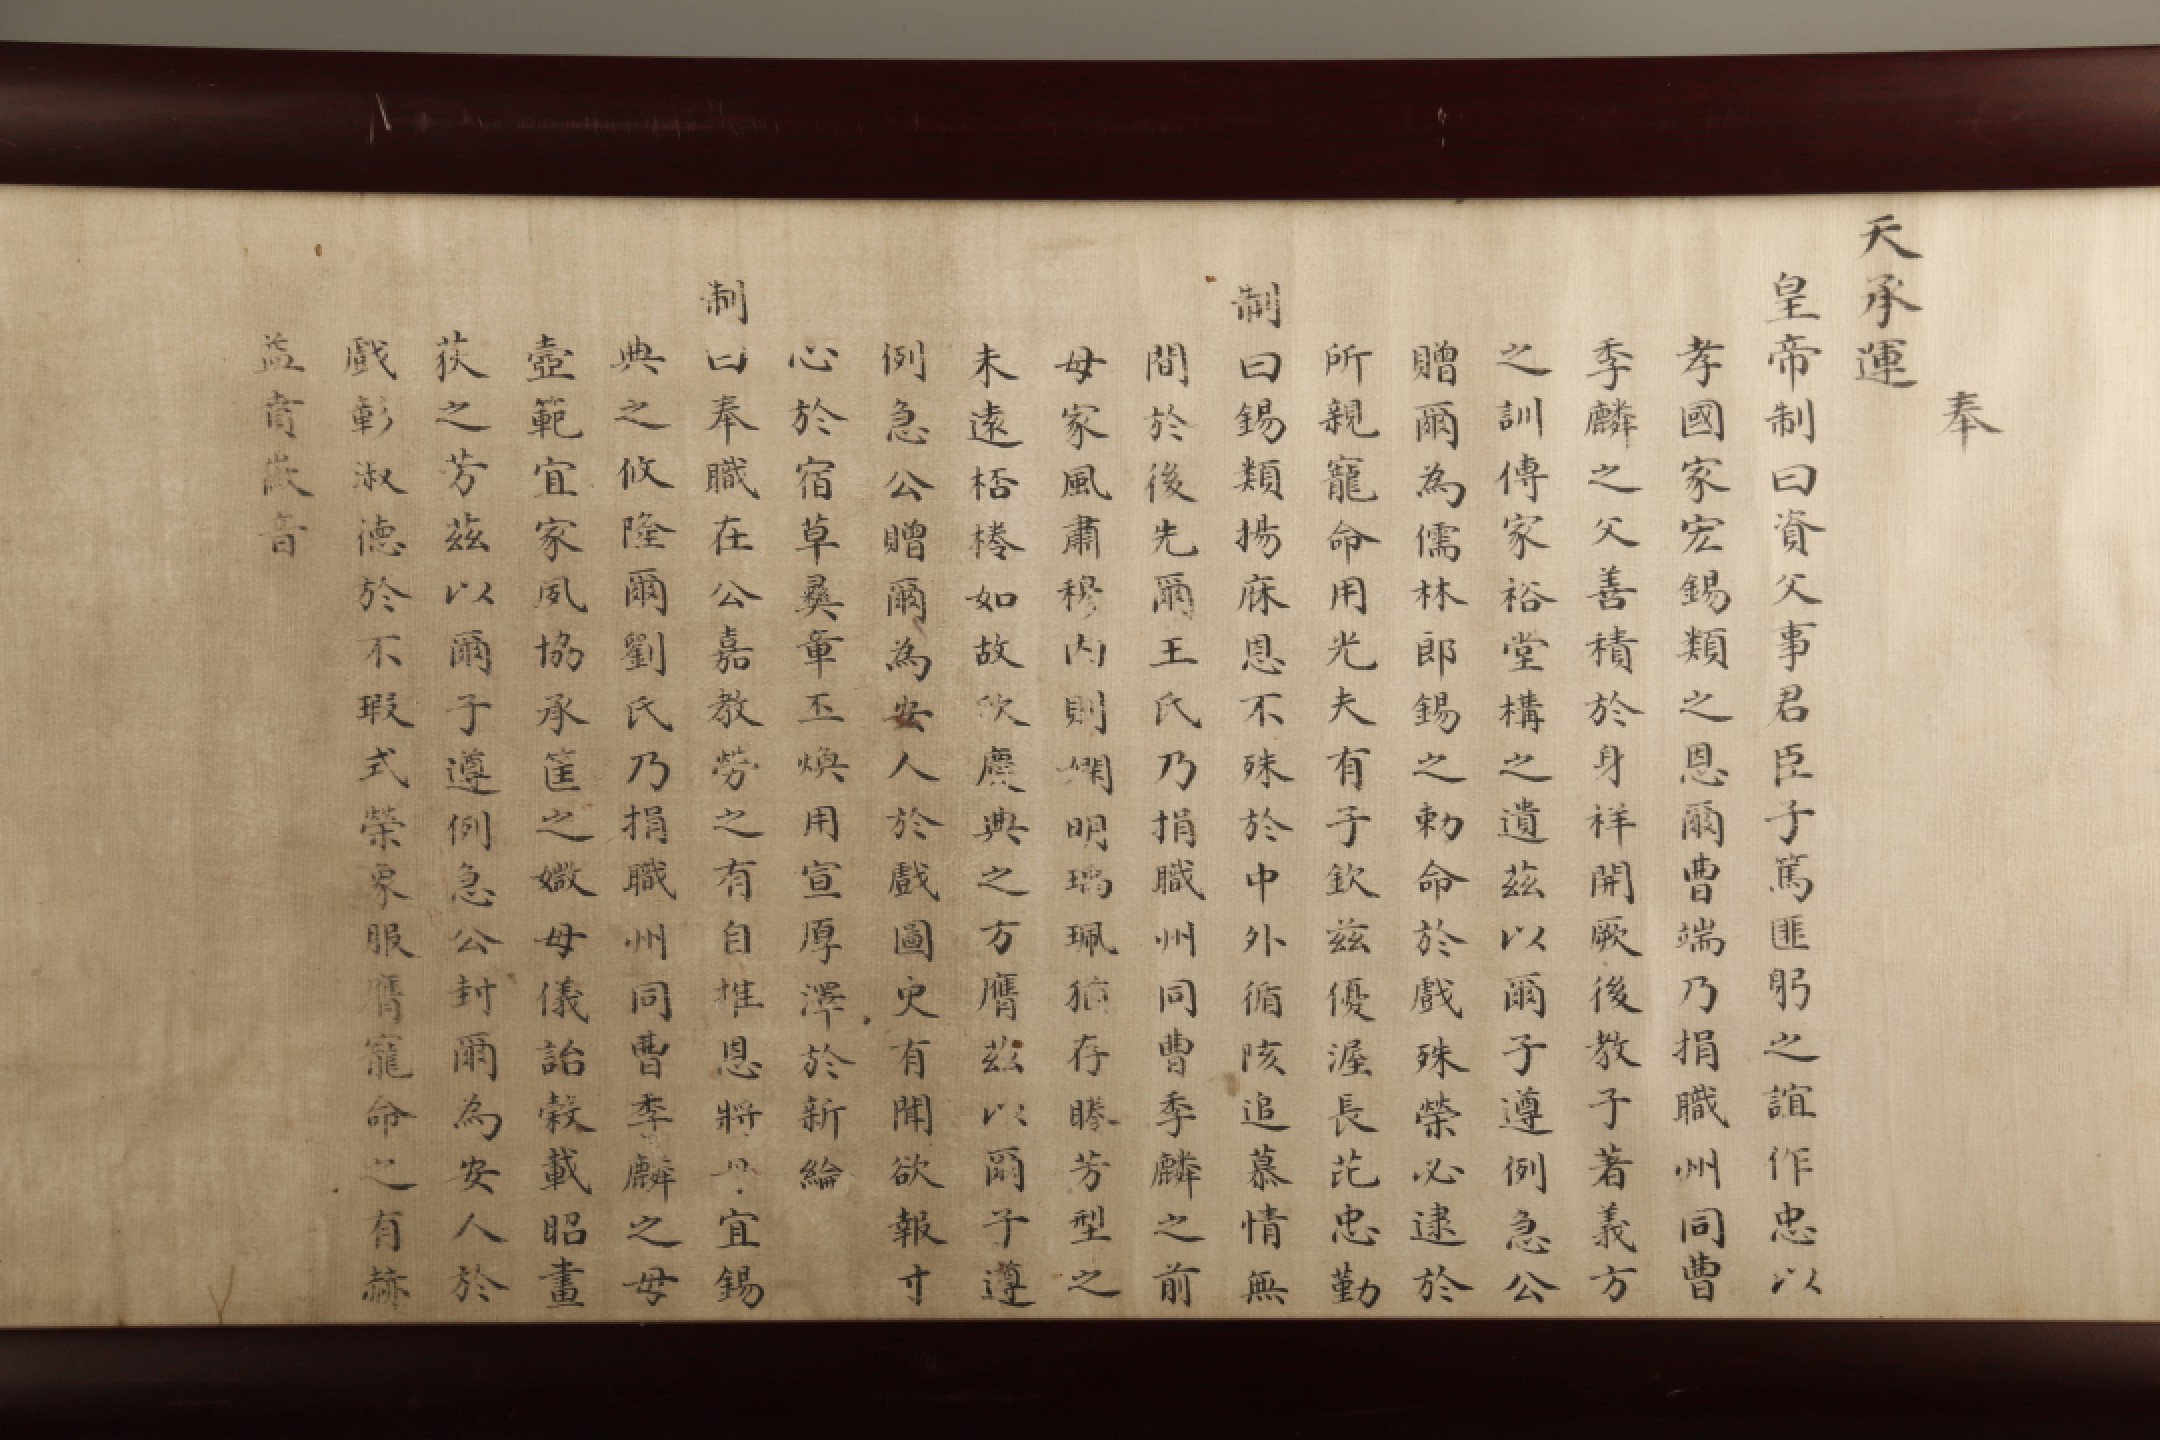 奉
天承運
皇帝制曰資父事君臣子篤匪躬之誼作忠以
孝國家宏錫類之恩爾曹端乃捐職州同曹
季麟之父善積於身祥開厥後教子著義方
之訓傳家裕堂構之遺茲以爾子遵例急公
贈爾為儒林郎錫之勅命於戲殊榮必逮於
所親寵命用光夫有子欽茲優渥長芘忠勤
制曰錫類揚庥恩不殊於中外循陔追慕情無
間於後先爾王氏乃捐職州同曹季麟之前
母家風肅穆內則嫻明瑀珮猶存勝芳型之
未遠桮棬如故欣慶典之方膺茲以爾子遵
例急公贈爾為安人於戲圖史有聞欲報寸
心於宿草彝章丕煥用宣厚澤於新綸
制曰奉職在公嘉教勞之有自推恩將母宜錫
典之攸隆爾劉氏乃捐職州同曹季麟之母
壺範宜家夙協承筐之媺母儀詒穀載昭畫
荻之芳茲以爾子遵例急公封爾為安人於
戲彰淑德於不瑕式榮象服膺寵命之有赫
益賁徽音